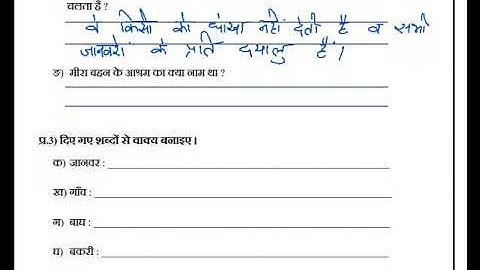 चलता है ?
वे किसी को धोखा नहीं देती है व सभी
जानवरों के प्रति दयालु हैं।
ङ) मीरा बहन के आश्रम का क्या नाम था ?
प्र.3) दिए गए शब्दों से वाक्य बनाइए।
क) जानवर :
ख) गाँव :
ग) बाघ :
घ) बकरी :